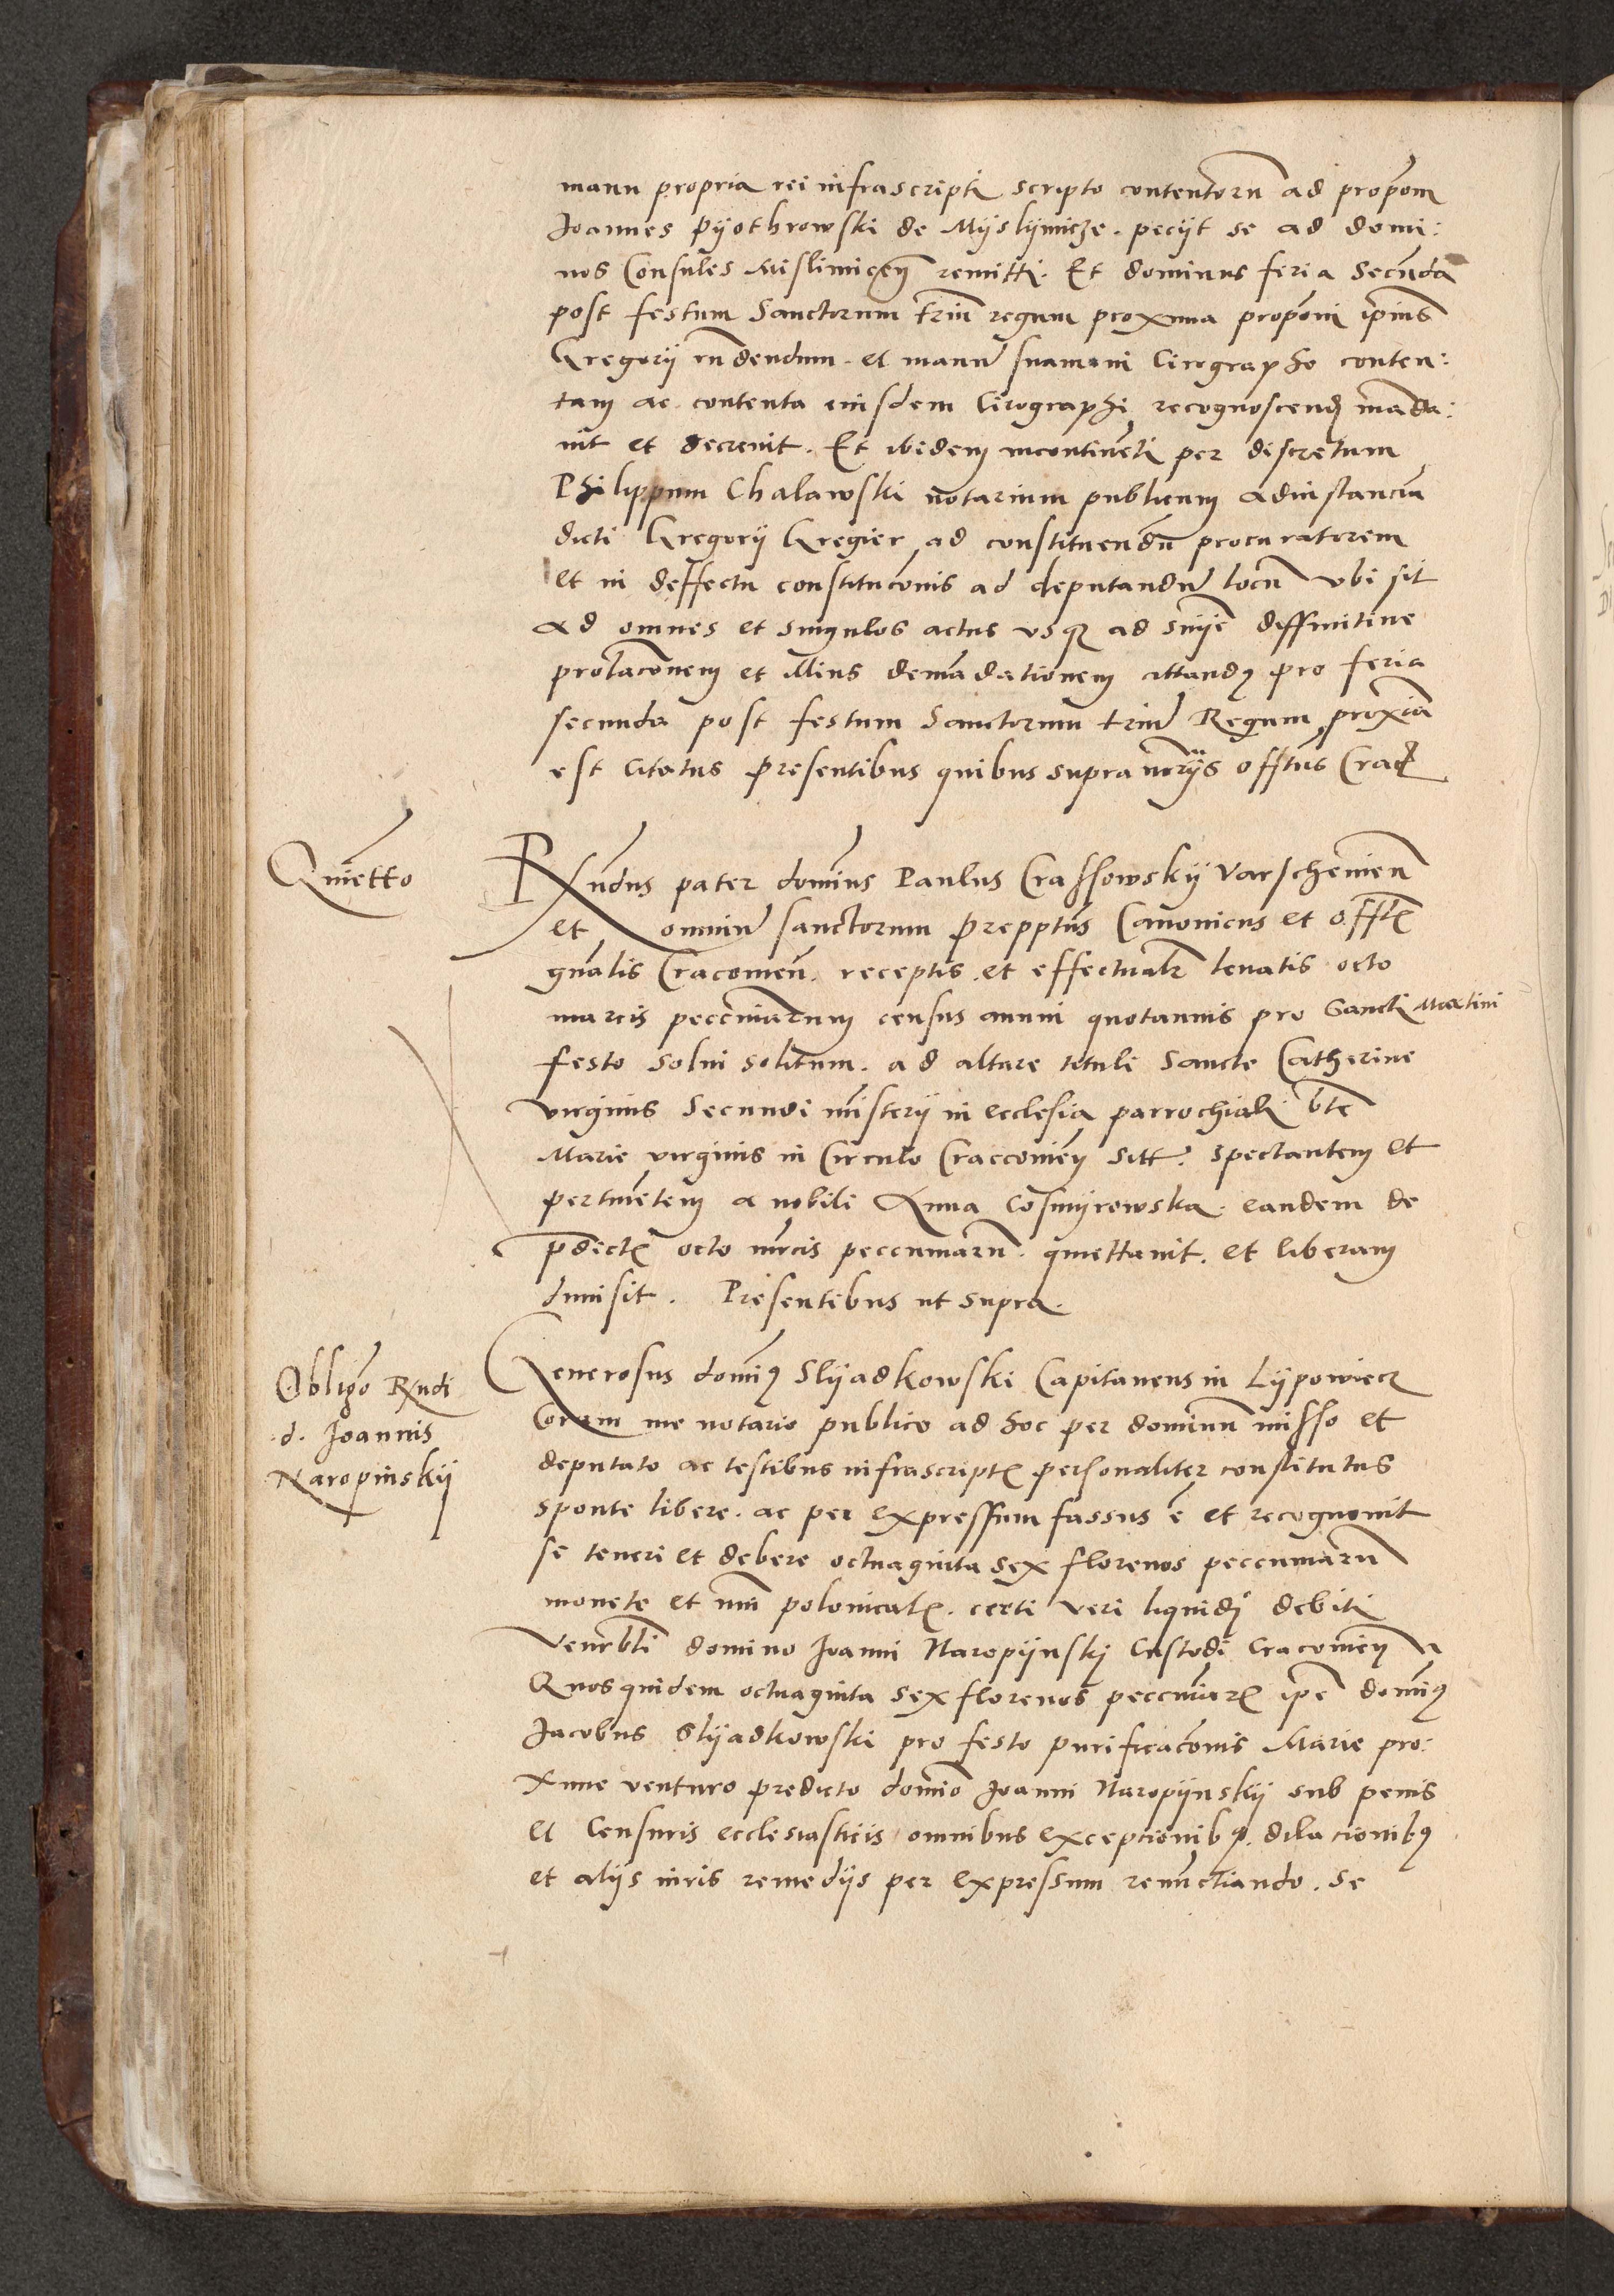 manu propria rei infrascripti scripto contentorum ad propōem
Joannes Pyothrowski de Myslymicze. peciyt se ad domi:
nos Consules Mislimiceñ remitti. Et dominus feria secūda
post festum Sanctorum triū regum proxima propōni ipius
Gregorÿ rñdendum. et manū suam in Cirographo conten:
tam ac contenta eiusdem Cirographi recognoscend māda:
uit et decreuit. Et ibidem incontinēti per discretum
Philippum Chalawski notarium publicum ad instanciā
dicti Gregorÿ Gregier ad constituendū procuratorem
et in deffectu constitucōnis ad deputandū locū vbi sit
ad omnes et singulos actus vsq ad snÿe diffinitiue
prolacōnem et illius demādationem cittandꝰ pro feria
secunda post festum Sanctorum triū Regum proxīa
est citatus presentibus quibus supra offitus Crac
Quietto
Rxndus pater dominus Paulus Crassowskÿ Varscheuieñ
et omniū sanctorum prepptus Canonicus et offitꝭ
gñalis Cracouieñ. receptis. et effectualr leuatis octo
marcis peccuniarum census annui quotannis pro Sancti Martini
festo solui solitum. ad altare tituli Sancte Catherine
virginis Secundi misterÿ in ecclesia parrochiali bte
Marie virginis in Circulo Craccouieñ Sitt. spectantem et
pertinētem a nobili Anna Cosmyrowska. eandem de
pdictꝭ octo mrcis peccuniarū. quiettauit. et liberam
dimisit. Presentibus ut supra.
Obligō Rxndi
d. Joannis
Naropinskÿ
Generosus domīꝰ Slyadkowski Capitaneus in Lypowiecz
Coram me notario publico ad hoc per dominū misso et
deputato ac testibus infrascriptꝭ personaliter constitutus
sponte libere. ac per expressum fassus ē et recognouit
se teneri et debere octuaginta sex florenos peccuniarū
monete et nūi polonicalꝭ. certi veri liquidi debiti
Venerbli domino Joanni Naropÿnskÿ Custodi Cracouieñ
Quosquidem octuaginta sex florenos peccuniarꝭ ipe domīꝰ
Jacobus Slyadkowski pro festo purificacōnis Marie pro:
xime venturo predicto domīo Joanni Naropÿnskÿ sub penis
et Censuris ecclesiasticis omnibus exceptionibꝰ. dilacionibꝰ
et alÿs iuris remedÿs per expressum renūctiando. se